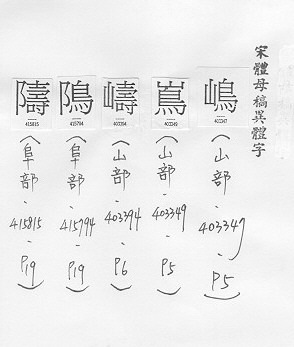 宋體母稿異體字
嶋
403347
(山部-403347-P5)
嶌
403349
(山部-403349-P5)
嶹
403394
(山部-403394-P6)
隝
415794
(阜部-415794-P19)
隯
415815
(阜部-415815-P19)